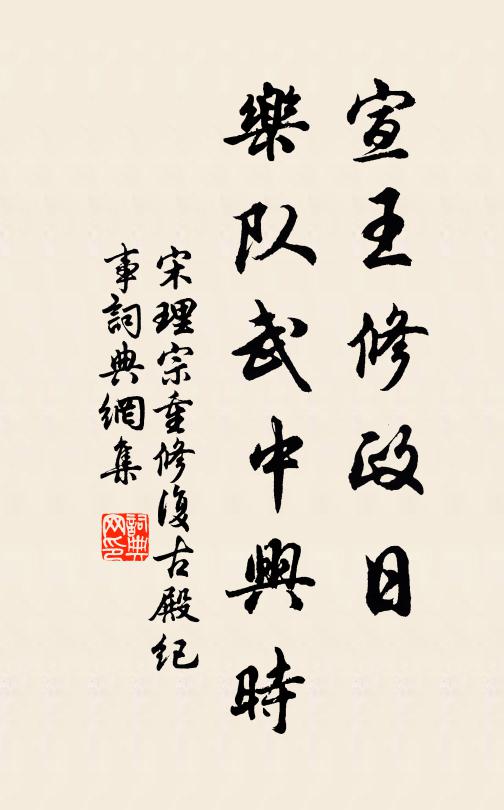 宣王修政日
樂队武中興時
宋理宗重修復古殿纪
事詞典網集
詞典网印